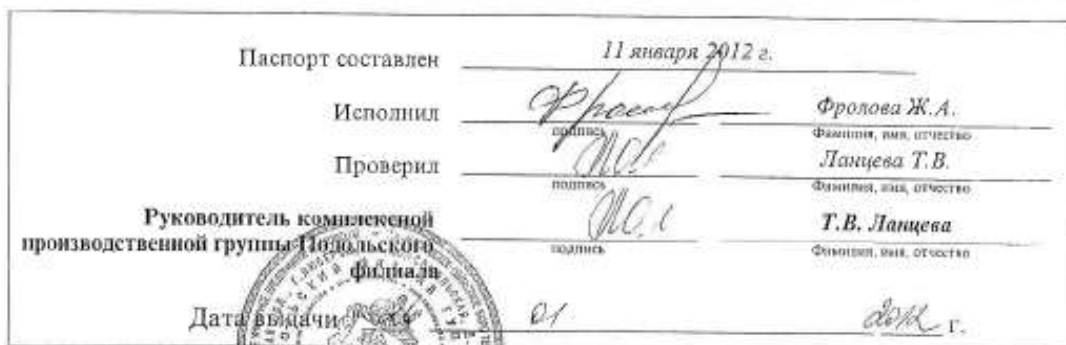 Паспорт составлен 11 января 2012 г.
Исполнил Фролова Ж.А.
подпись Фамилия, имя, отчество
Проверил Ланцева Т.В.
подпись Фамилия, имя, отчество
Руководитель комплексной
производственной группы Подольского
филиала
Т.В. Ланцева
подпись Фамилия, имя, отчество
Дата выдачи 01 2012 г.